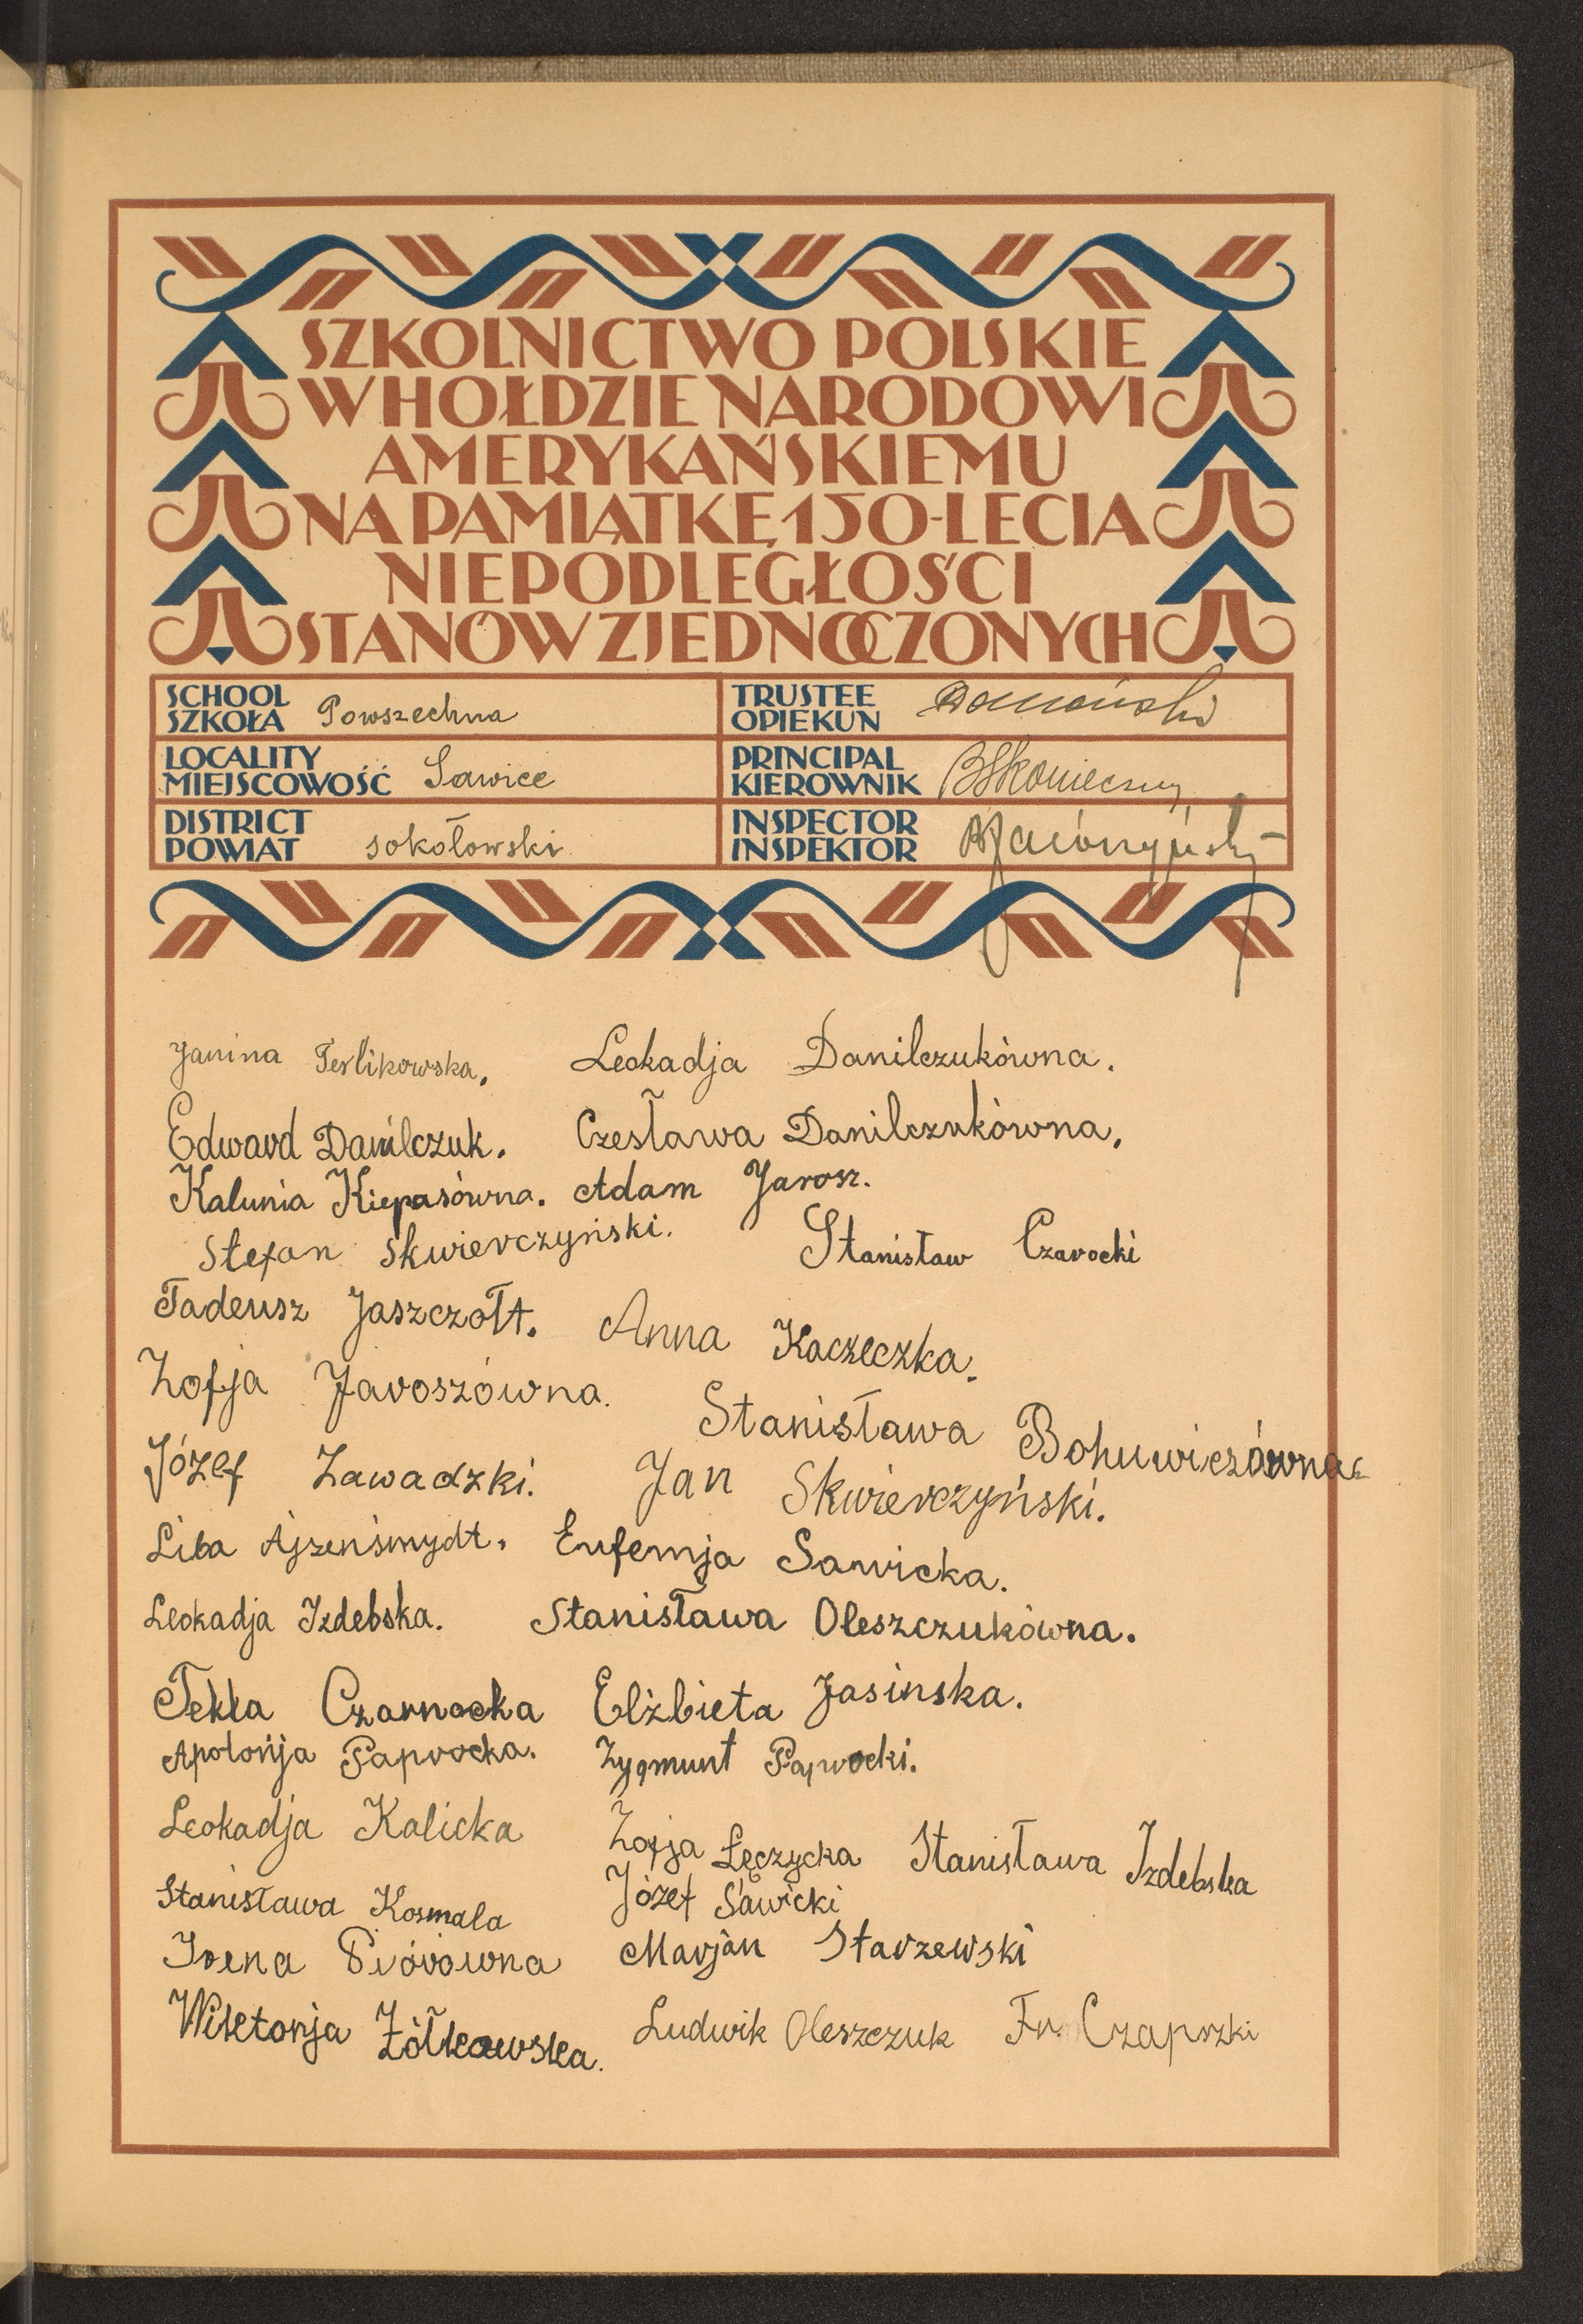 SZKOLNICTWO POLSKIE
W HOŁDZIE NARODOWI
AMERYKAŃSKIEMU
NA PAMIĄTKĘ 150-LECIA
NIEPODLEGŁOŚCI
STANÓW ZJEDNOCZONYCH
SCHOOL
SZKOŁA Powszechna
TRUSTEE
OPIEKUN
LOCALITY
MIEJSCOWOŚĆ Sawice
PRINCIPAL
KIEROWNIK
DISTRICT
POWIAT sokołowski
INSPECTOR
INSPEKTOR
Janina Terlikowska, Leokadja Danilczukówna.
Edward Danilczuk. Czesława Danilczukówna,
Kalunia Kiepasówna. Adam Jarosz.
Stefan Skwierczyński. Stanisław Czarocki
Tadeusz Jaszczołt. Anna Kaczeczka.
Zofja Jaroszówna. Stanisława Bohuwiczówna
Józef Zawadzki. Jan Skwierczyński.
Liba Ajzenśmydt. Eufemja Sawicka.
Leokadja Izdebska. Stanisława Oleszczukówna.
Tekla Czarnocka Elżbieta Jasinska.
Apolońja Paprocka. Zygmunt Paprocki.
Leokadja Kalicka Zofja Łęczycka Stanisława Izdebska
Stanisława Kosmala Józef Sawicki
Irena Piórówna Marjan Starzewski
Wiktorja Żółkowska. Ludwik Oleszczuk Fr. Czapszki